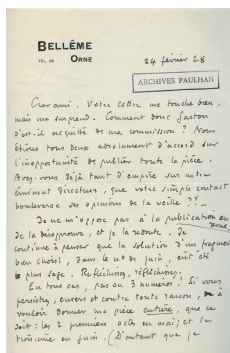 BELLÊME
TÉL. 28 ORNE
24 février 28
ARCHIVES PAULHAN
Cher ami. Votre lettre me touche bien,
mais me surprend. Comment donc Gaston
s'est-il acquitté de ma commission ? Nous
étions tous deux absolument d'accord sur
l'inopportunité de publier toute la pièce.
Avez-vous déjà tant d'empire sur notre
éminent Directeur, que votre simple contact
bouleverse ses opinions de la veille ??
Je ne m'oppose pas à la publication en revue,
je la désapprouve, et je la redoute. Je
continue à penser que la solution d'un fragment
bien choisi, dans le no de juin, eût été
plus sage. Réfléchissez, réfléchissez.
En tous cas, pas en 3 numéros ! Si vous
persistez, envers et contre toute raison, à
vouloir donner ma pièce entière, que ce
soit : les 2 premiers actes en mai ; et le
troisième en juin. (D'autant que je